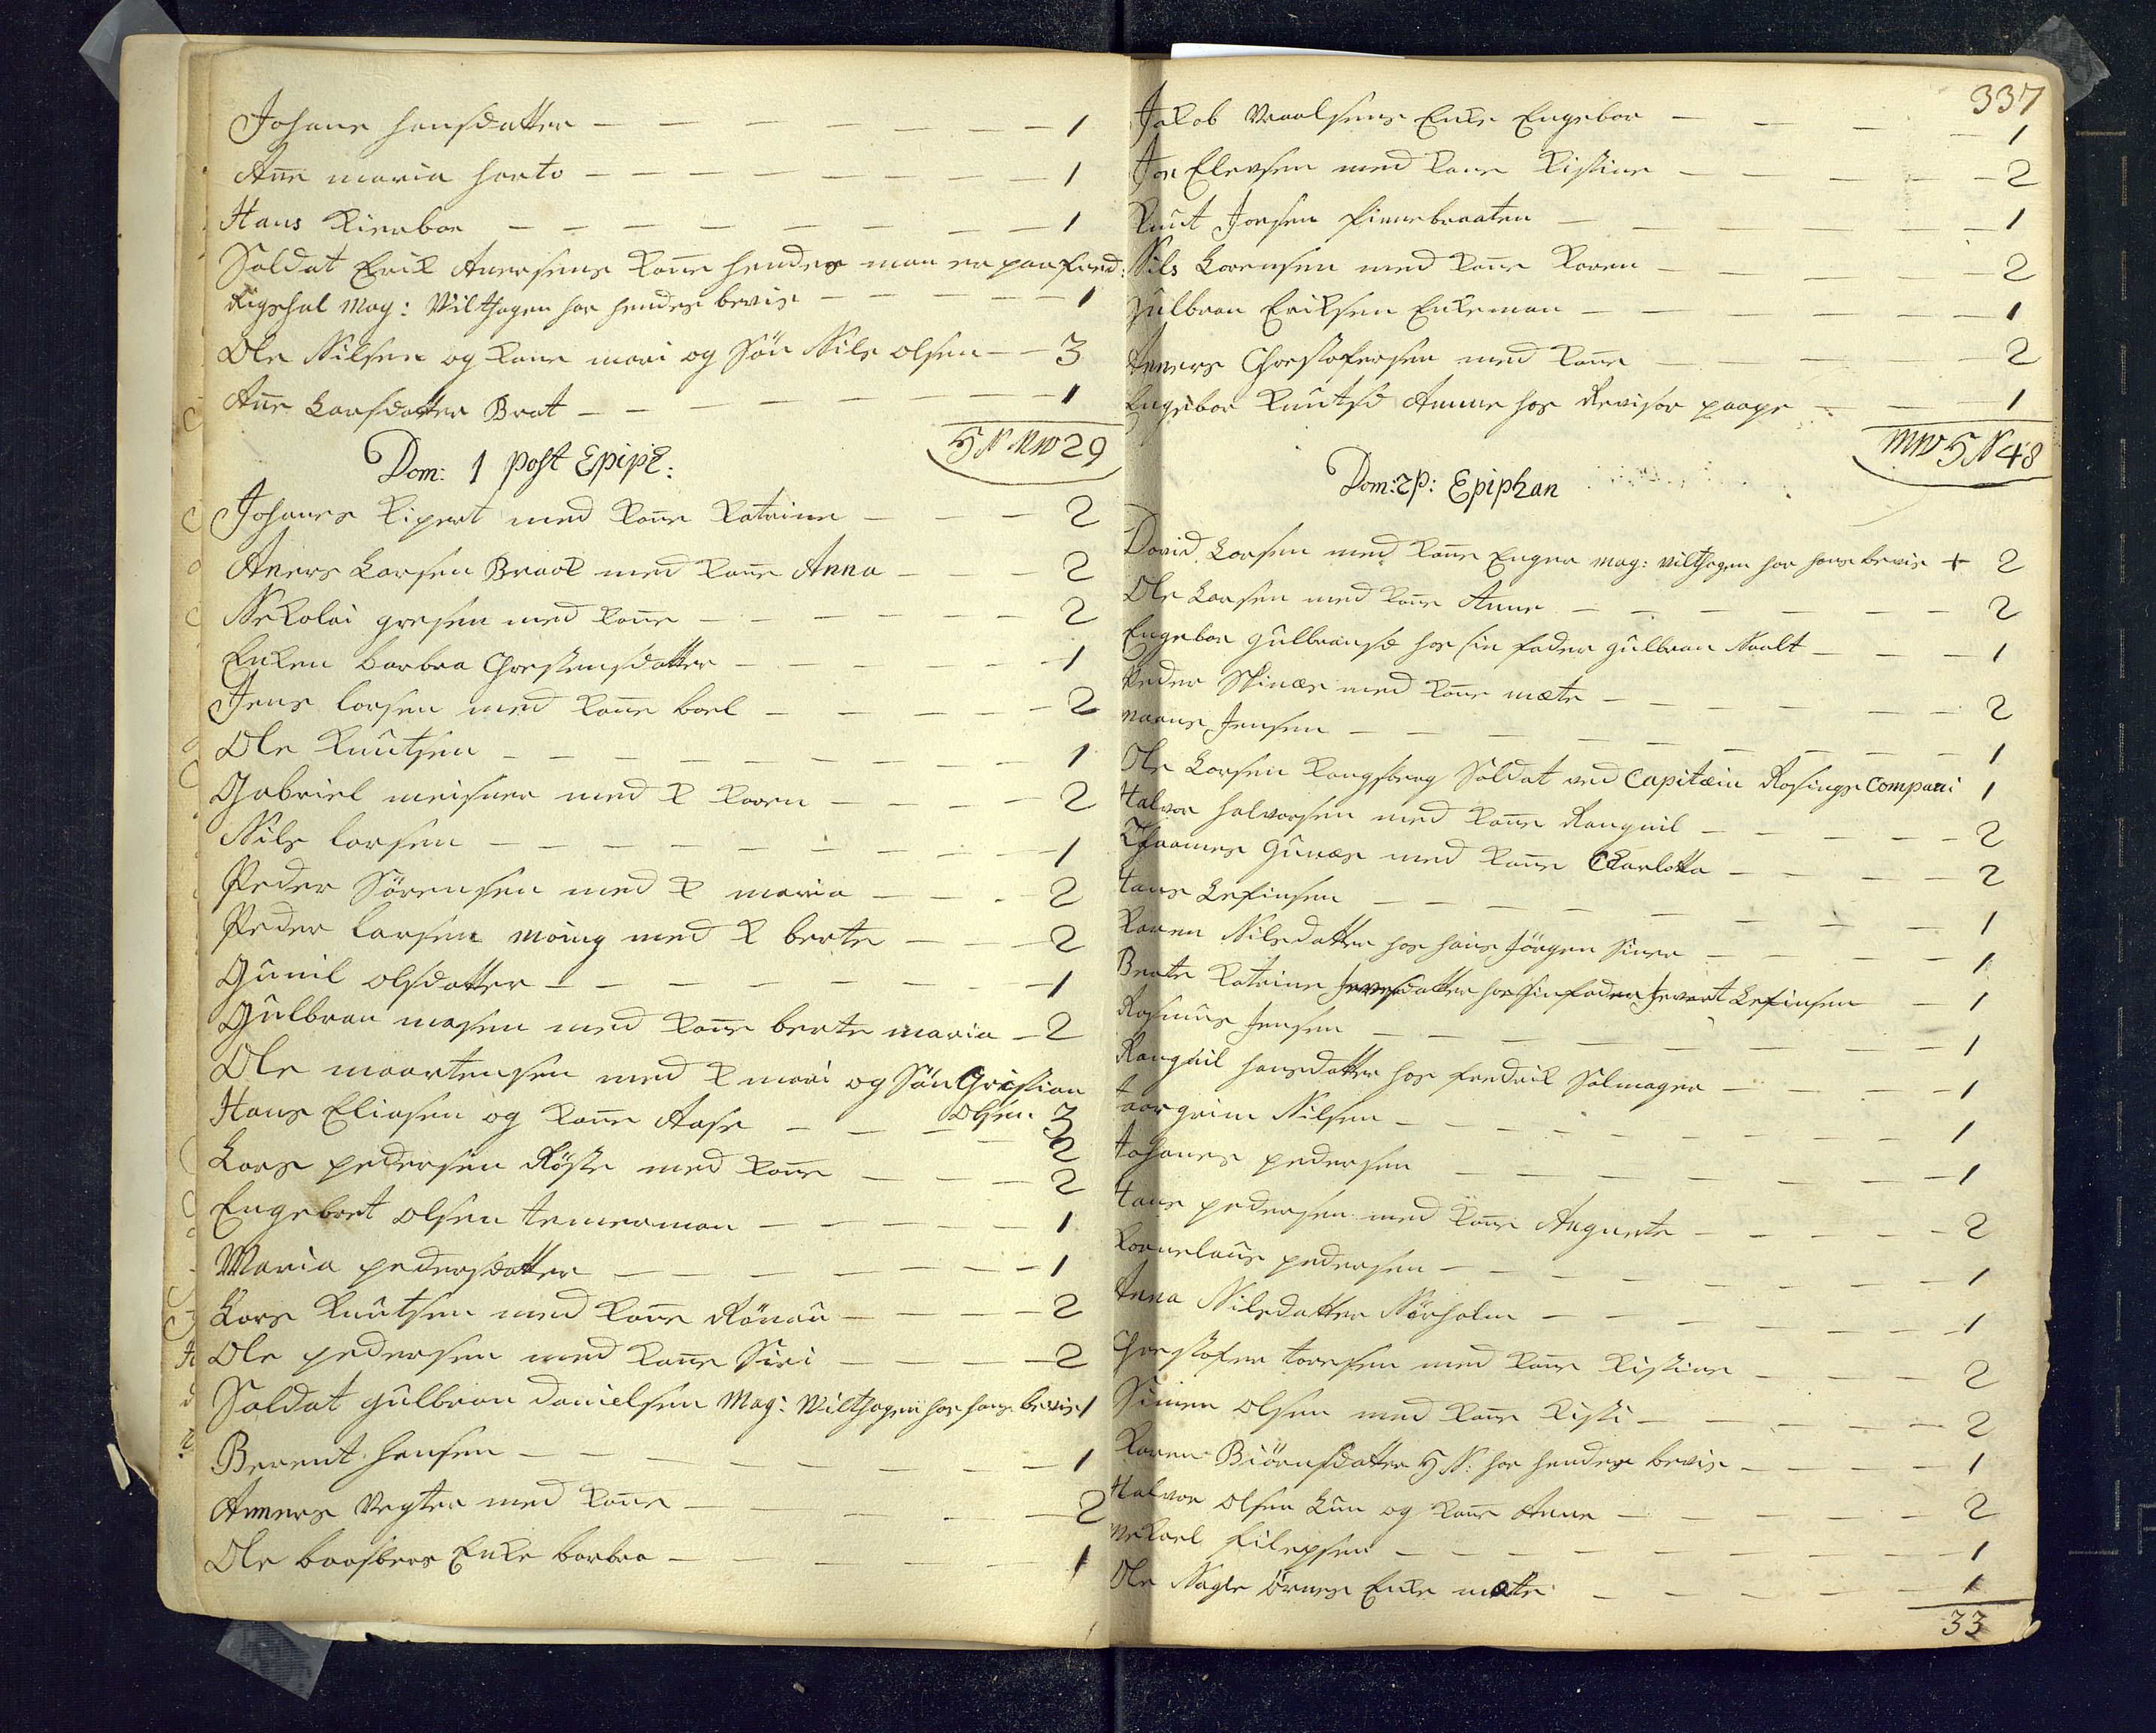 Johane hansdatter — 1
Añe maria harts — 1
Hans Kierbor — 1
Soldat Erik Anersens Koñe hendes man er paa fred:
Rigshal Mag: Wilthagen har hendes bevis — 1
Ole Nilsen og Kone mari og Søn Nils olsen — 3
Añe Larsdatter Brat — 1
H N MW 29
Dom: 1 post Epiph:
Johanes Kipert med Koñe Katrine — 2
Aners Larsen Braak med Koñe Anna — 2
Nekolai gresen med Koñe — 2
Enken barbra Chrestensdatter — 1
Jens larsen med Koñe boel — 2
Ole Knutsen — 1
Gabriel meisner med K Karen — 2
Nils larsen — 1
Peder Sørensen med K maria — 2
Peder larsen moing med K berte — 2
Gunil olsdatter — 1
Gulbran masen med Koñe berte maria — 2
Ole maartensen med K mari og Søn Christian
olsen 3
Hans Eliasen og Koñe Aase — 2
Lars pedersen Røste med Koñe — 2
Engebret olsen temerman — 1
Maria pedersdatter — 1
Lars Knutsen med Koñe Rønau — 2
Ole pedersen med Koñe Siri — 2
Soldat gulbran danielsen Mag: Wilthagen har hans bevis 1
Berent hansen — 1
Anners Vegter med Koñe — 2
Ole baasbers Enke barbra — 1
337
Jakob Wraalsens Enke Engebor — 1
Jon Elevsen med Kone Kistine — 2
Knut Joesen finnebraaten — 1
Nils Lorensen med Koñe Karen — 2
Gulbran Eriksen Enkeman — 1
Anners Chrestofersen med Koñe — 2
Engebor Knutsd Anner hos Revisor paape — 1
MW H N 48
Dom: 2 P: Epiphan
David Larsen med Koñe Enger mag: wilthagen har hans bevis + 2
Ole Larsen med Koñe Anne — 2
Engebor gulbransd hos sin fader gulbran Naalt — 1
Peder Skinæs med Koñe mæte — 2
maans Jensen — 1
Ole Larsen Kongsberg Soldat ved Capitæin Rosings Compani 1
Halvor halvorsen med Koñe Rangnil — 2
Thaames Gunæs med Koñe Charlotta — 2
Hans Lefinsen — 1
Karen Nilsdatter hos hans Jørgen Siver — 1
Berte Katrine Jeversdatter hos sin fader Jevert Lefinsen — 1
Rasmus Jensen — 1
Rangnil hansdatter hos fredrik Salmager — 1
taargrim Nilsen — 1
Johanes pedersen — 1
Hans pedersen med Koñe Angnete — 2
Kornelaus pedersen — 1
Anna Nilsdatter Nørholm — 1
Chrestofer toresen med Koñe Kistine — 2
Simen olsen med Koñe Kisti — 2
Karen Biørnsdatter H N: har hendes bevis — 1
Halvor olsen Lun og Koñe Anne — 2
mekael filepsen — 1
Ole Nagle ørnes Enke mæte — 1
33